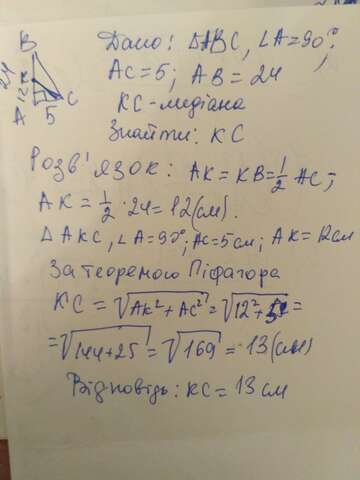 Дано: ΔABC, ∠A=90°;
AC=5; AB=24
KC-медіана
Знайти: KC
B
24
12
K
A 5 C
Розв'язок: AK=KB=½ AC;
AK=½·24=12(см).
ΔAKC, ∠A=90°; AC=5см; AK=12см
За теоремою Піфагора
KC=√AK²+AC²=√12²+5²=
=√144+25=√169=13(см)
Відповідь: KC=13см